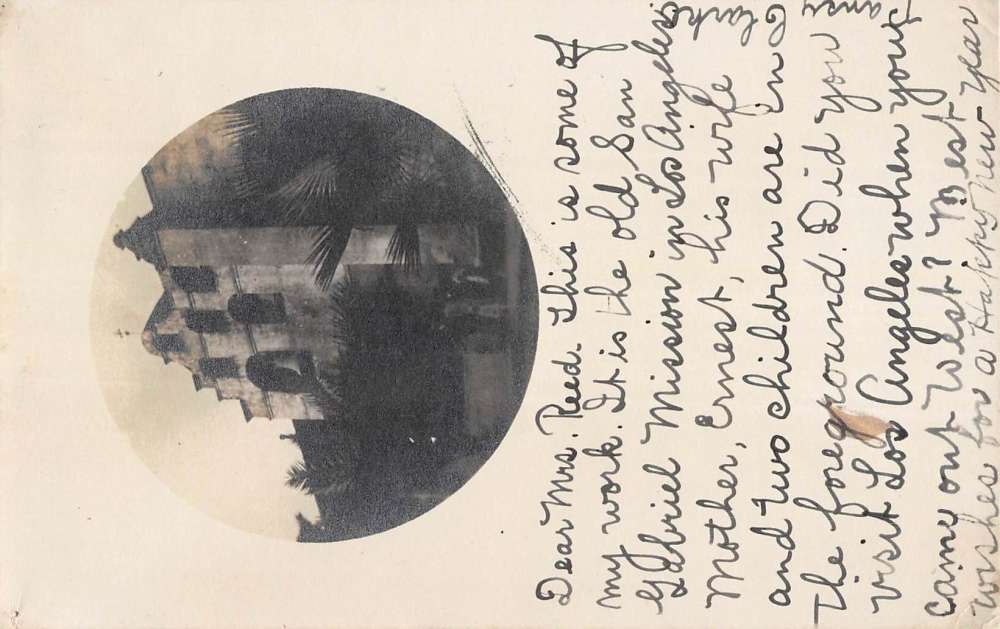 Dear Mrs. Reed. This is some of
my work. It is the old San
Gabriel Mission in Los Angeles.
Mother, Ernest, his wife
and two children are in
the foreground. Did you
visit Los Angeles when you
came out West? Best
wishes for a Happy New Year
Clark